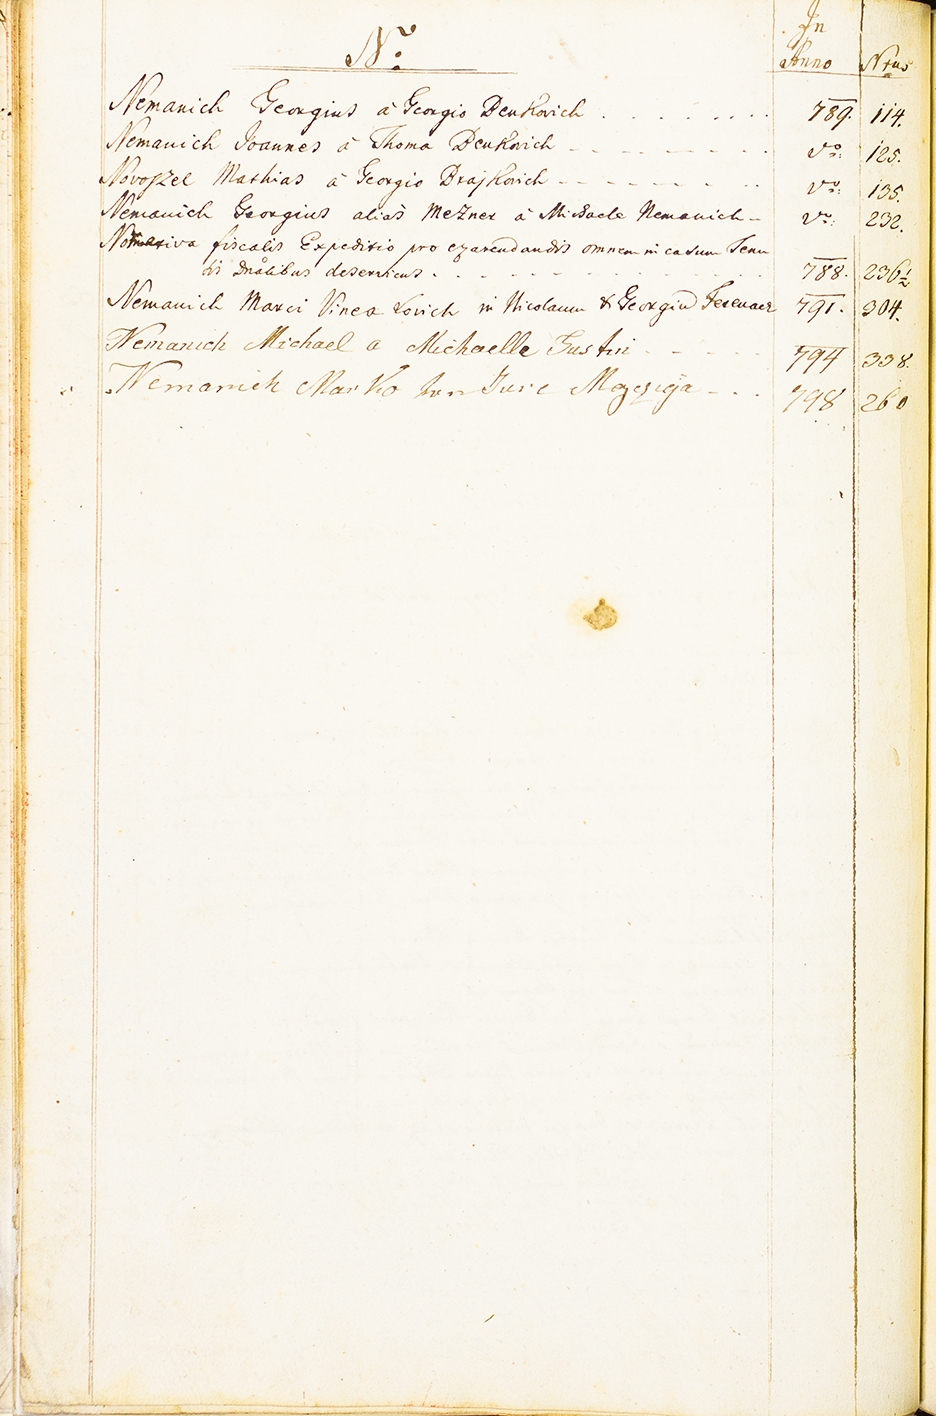 N.
In Anno Nrus
Nemanich Georgius á Georgio Denkovich . . . . . . . 789. 114.
Nemanich Joannes á Thoma Denkovich - - - - - - - vo: 125.
Novoszel Mathias á Georgio Drajkovich - - - - - - - vo: 135.
Nemanich Georgius alias Mezner á Michaele Nemanich - vo: 232.
Normativa fiscalis Expeditio pro exarendandis omnem in casum
dnalibus deserricus . . . . . . . . . . . 788. 236½
Nemanich Marci Vinea Lovich in Nicolaum & Georgiu 791. 304.
Nemanich Michael a Michaelle Justin - - - - 794 338.
Nemanich Marko Jure - . . 798 260